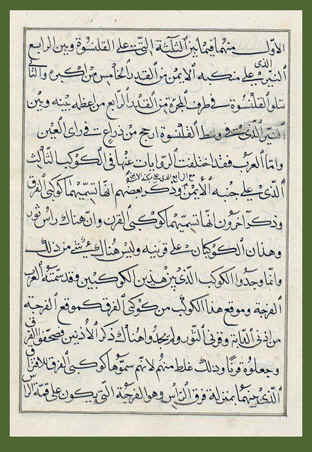 الاول منهما فيما بين الثلثة التي على القلنسوة وبين الرابع
الذي
النير على منكبه الايمن من القدر الخامس من كبره والثا
تلو القلنسوة في طرف المجرة من القدر الرابع من اعظمه بينه وبين
النير الذي وسط القلنسوة ارجح من ذراع في راى العين
واما العرب فقد اختلفت الروايات عنها في الكوكب الثالث
الذي على جنبه الايمن وذكر بعضهم انها تسميهما كوكبي الفرق
وذكر اخرون انها تسميهما كوكبي القرن وان هناك راس ثور
وهذان الكوكبان على قرنيه وليس هناك شيء من ذلك
وانما وجدوا الكوكب الذي بين هذين الكوكبين وقد سمته العرب
القرحة وموقع هذا الكوكب من كوكبي الفرق كموقع القرحة
من اذني الدابة وقرني الثور ولم يجدوا هناك ذكر الاذنين فصحفوا الفرق
وجعلوه قرنا وذلك غلط منهم لانهم سموها كوكبي الفرق
الذي جنبهما بمنزلة فرق الراس وهو الفرجة التي يكون على قمة الراس